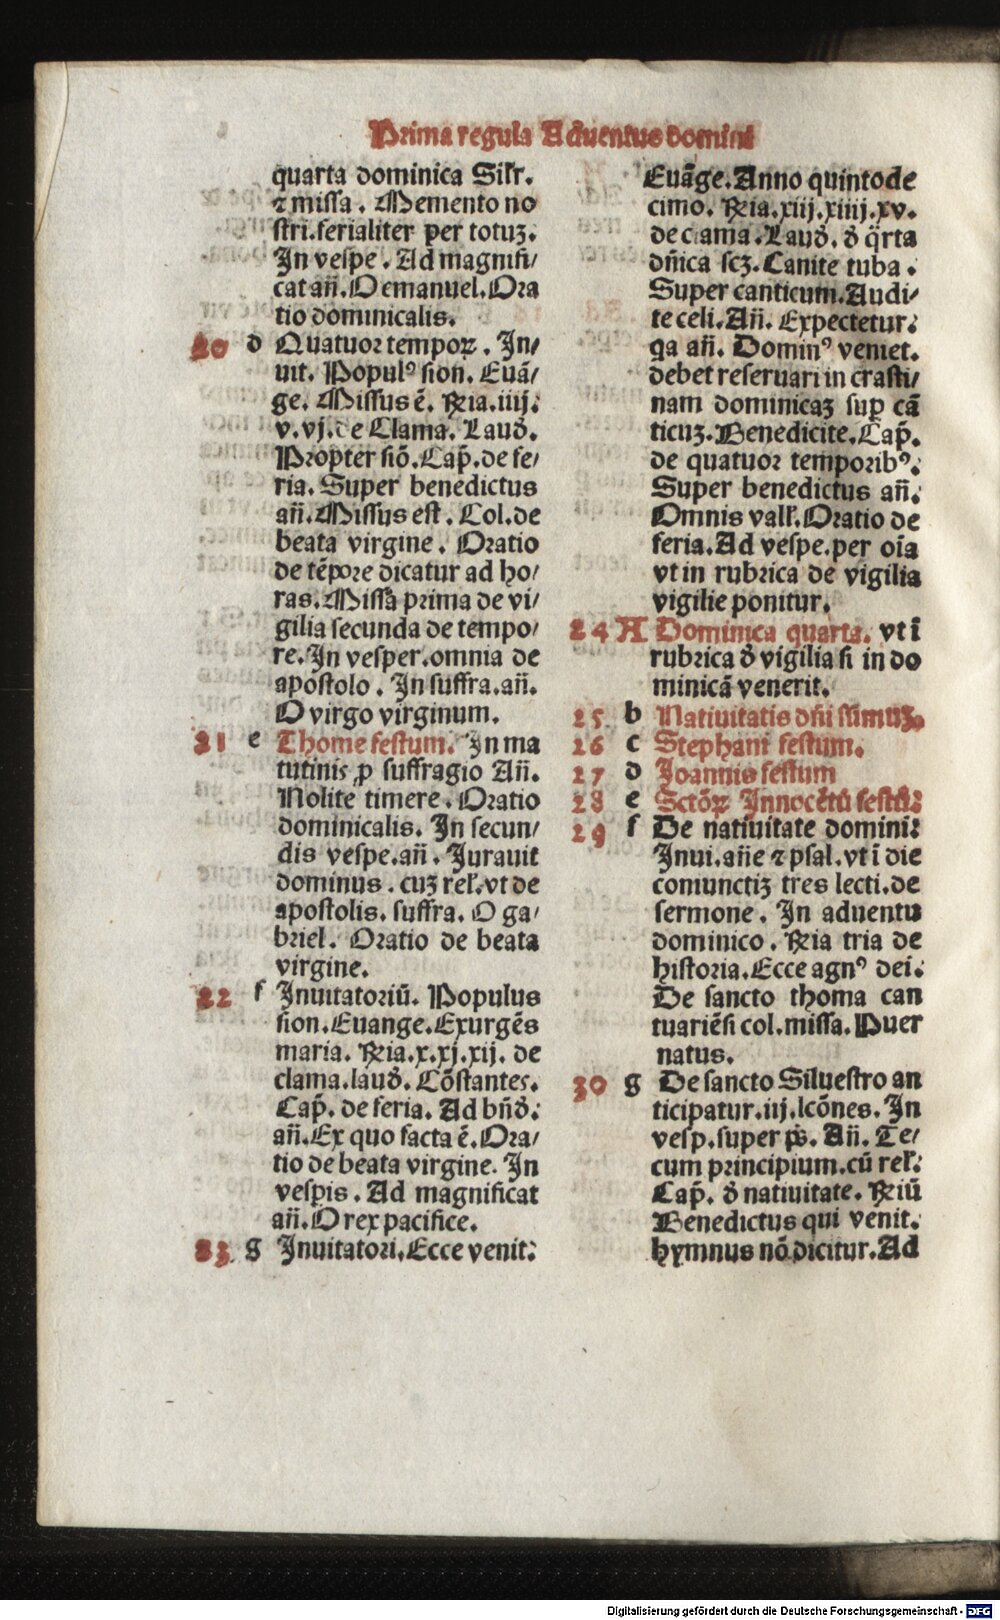 Prima regula Aduentus domini
quarta dominica Silr.
⁊ missa. Memento no
stri.ferialiter per totuʒ.
In vespe. Ad magnifi/
cat añ.O emanuel.Ora
tio dominicalis.
20 d Quatuor tempoꝝ. In/
uit. Popul⁹ sion. Euã/
ge. Missus ē. ℞ia.iiij.
v.vj.de Clama. Laud̕.
Propter siõ.Cap̃.de fe/
ria. Super benedictus
añ.Missus est. Col.de
beata virgine. Oratio
de tẽpore dicatur ad ho/
ras.Missa prima de vi/
gilia secunda de tempo/
re.In vesper.omnia de
apostolo. In suffra.añ.
O virgo virginum.
21 e Thome festum. In ma
tutinis ꝓ suffragio Añ.
Nolite timere. Oratio
dominicalis. In secun/
dis vespe.añ. Jurauit
dominus. cuʒ reł.vt de
apostolis. suffra. O ga/
briel. Oratio de beata
virgine.
22 f Inuitatoriũ. Populus
sion.Euange.Exurgẽs
maria. ℞ia.x.xj.xij. de
clama.laud̕. Cõstantes.
Cap̃. de feria. Ad bñd̕.
añ.Ex quo facta ē.Ora/
tio de beata virgine. In
vespis. Ad magnificat
añ.O rex pacifice.
23 g Inuitatori.Ecce venit.
Euãge.Anno quintode
cimo. ℞ia.xiij.xiiij.xv.
de clama.Laud̕. d̕ q̈rta
dñica scʒ.Canite tuba.
Super canticum.Audi/
te celi.Añ. Expectetur.
qa añ. Domin⁹ veniet.
debet reseruari in crasti/
nam dominicaʒ sup̱ cã
ticuʒ.Benedicite.Cap̃.
de quatuor temporib⁹.
Super benedictus añ.
Omnis vałł.Oratio de
feria.Ad vespe.per oĩa
vt in rubrica de vigilia
vigilie ponitur.
24 A Dominica quarta. vt ĩ
rubrica d̕ vigilia si in do
minicã venerit.
25 b Natiuitatis dñi sũmuʒ.
26 c Stephani festum.
27 d Joannis festum
28 e Sctõꝝ Innocẽtũ festũ.
29 f De natiuitate domini.
Inui.añe ⁊ psal.vt ĩ die
coniunctiʒ tres lecti.de
sermone. In aduentu
dominico. ℞ia tria de
historia.Ecce agn⁹ dei.
De sancto thoma can
tuariẽsi col.missa.Puer
natus.
30 g De sancto Siluestro an
ticipatur.iij.lcõnes. In
vesp.super p̃s. Añ. Te/
cum principium.cũ reł.
Cap̃. d̕ natiuitate. ℞iũ
Benedictus qui venit.
hymnus nõ dicitur.Ad
Digitalisierung gefördert durch die Deutsche Forschungsgemeinschaft - DFG